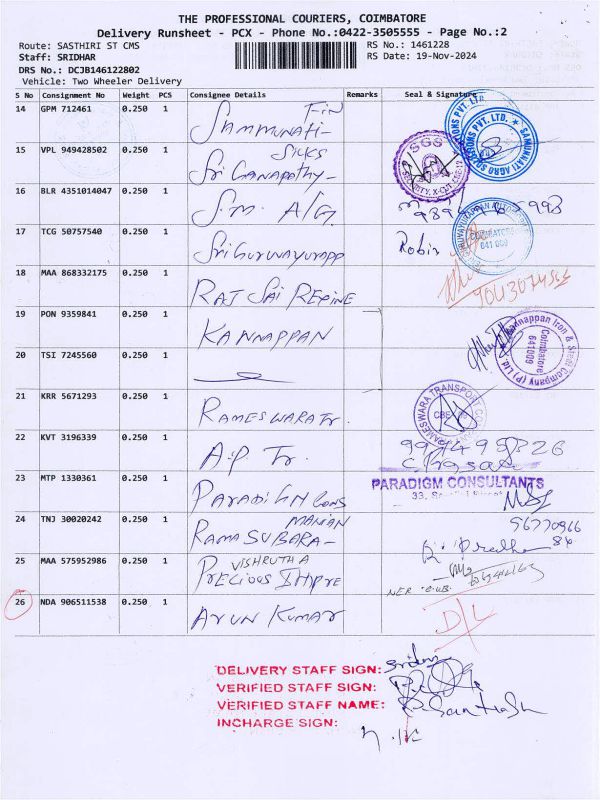 THE PROFESSIONAL COURIERS, COIMBATORE
Delivery Runsheet - PCX - Phone No.:0422-3505555 - Page No.:2
Route: SASTHIRI ST CMS RS No.: 1461228
Staff: SRIDHAR RS Date: 19-Nov-2024
DRS No.: DCJB146122802
Vehicle: Two Wheeler Delivery
S No Consignment No Weight PCS Consignee Details Remarks Seal & Signature
14 GPM 712461 0.250 1 Sammunati- Fin
15 VPL 949428502 0.250 1 Sri Ganapathy- Silks
SGS
16 BLR 4351014047 0.250 1 S.M. A/G.
17 TCG 50757540 0.250 1 Sri Guruvayurapp Robin
COIMBATORE
641 009
18 MAA 868332175 0.250 1 RAJ SAI REXINE
19 PON 9359841 0.250 1 KANNAPPAN
Kannappan Iron & Steel Company (P) Ltd.
Coimbatore
641009
20 TSI 7245560 0.250 1
21 KRR 5671293 0.250 1 RAMESWARA Tr.
RAMESWARA TRANSPORT CO
CBE
22 KVT 3196339 0.250 1 A.P Tr.
23 MTP 1330361 0.250 1 PARADIGM Cons
PARADIGM CONSULTANTS
24 TNJ 30020242 0.250 1 RAMASUBARA- MANIAN
25 MAA 575952986 0.250 1 VISHRUTHA
26 NDA 906511538 0.250 1 ARUN KUMAR D/L
DELIVERY STAFF SIGN:
VERIFIED STAFF SIGN:
VERIFIED STAFF NAME: P. Santhosh
INCHARGE SIGN: